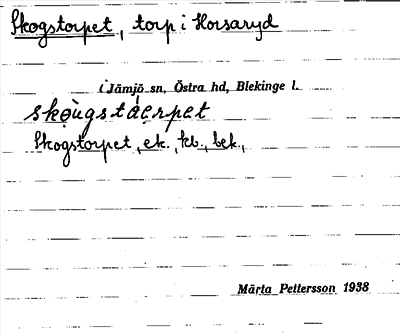 Skogstorpet, torp i Horsaryd
i Jämjö sn, Östra hd, Blekinge l.
skøu̇gstáerpet
Skogstorpet, ek., kb., bek.,
Märta Pettersson 1938